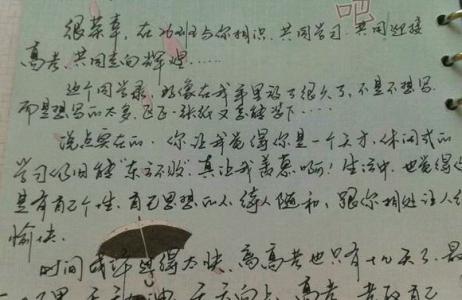 吧
很荣幸，在功班与你相识，共同学习，共同迎接
高考，共同走向辉煌……
这个同学录，好像在我手里放了很久了，不是不想写，
而是想写的太多，区区一张纸又怎能写下……
说点实在的，你让我觉得你是一个天才，休闲式的
学习仍旧能"东方不败"，真让我羡慕啊！生活中，也觉得
是有自己个性，自己思想的人，待人随和，跟你相处让人
愉快.
时间或许过得太快，离高考也只有十几天了，最
天天向上，高考，考取自己